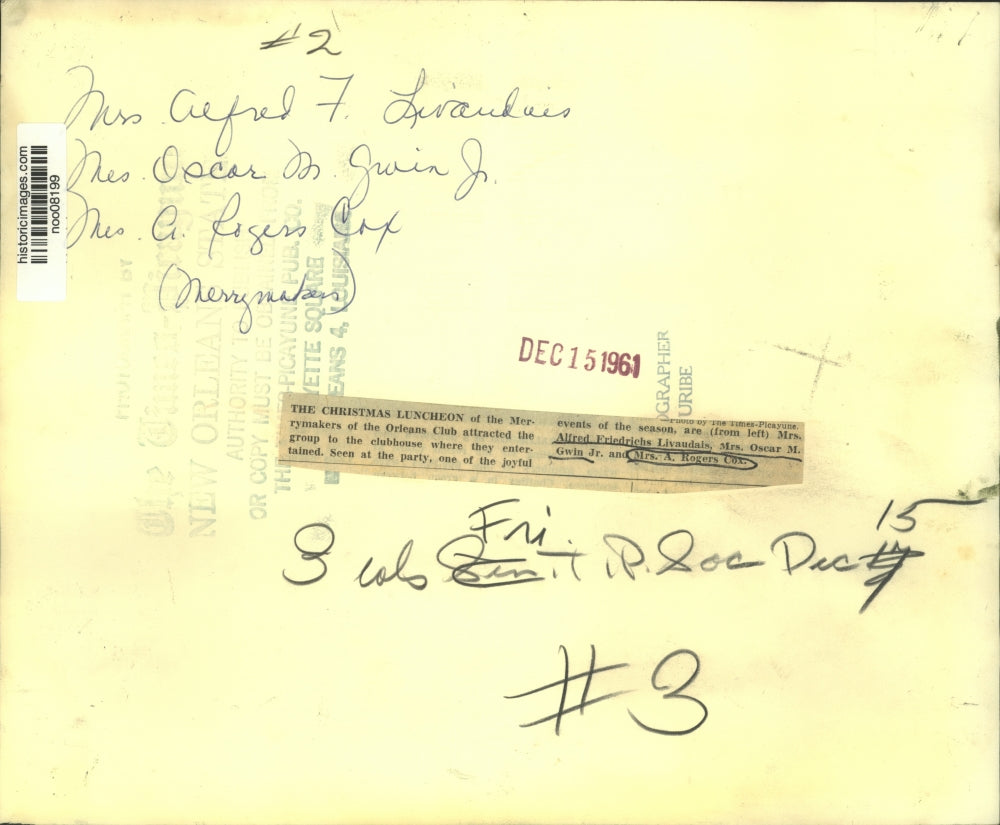 #2
Mrs Alfred F. Livaudais
Mrs. Oscar M. Gwin Jr.
Mrs. A. Rogers Cox
(Merrymakers)
historicimages.com
noo08199
The Times-Picayune
NEW ORLEANS STATES
AUTHORITY TO
OR COPY MUST BE OBTAINED FROM
THE TIMES-PICAYUNE PUB. CO.
LAFAYETTE SQUARE
NEW ORLEANS 4, LOUISIANA
DEC 15 1961
OGRAPHER
URIBE
THE CHRISTMAS LUNCHEON of the Mer-
rymakers of the Orleans Club attracted the
group to the clubhouse where they enter-
tained. Seen at the party, one of the joyful
—Photo by The Times-Picayune.
events of the season, are (from left) Mrs.
Alfred Friedrichs Livaudais, Mrs. Oscar M.
Gwin Jr. and Mrs. A. Rogers Cox.
Fri. 15
3 cols Sun. T.P. Soc Dec 17
#3